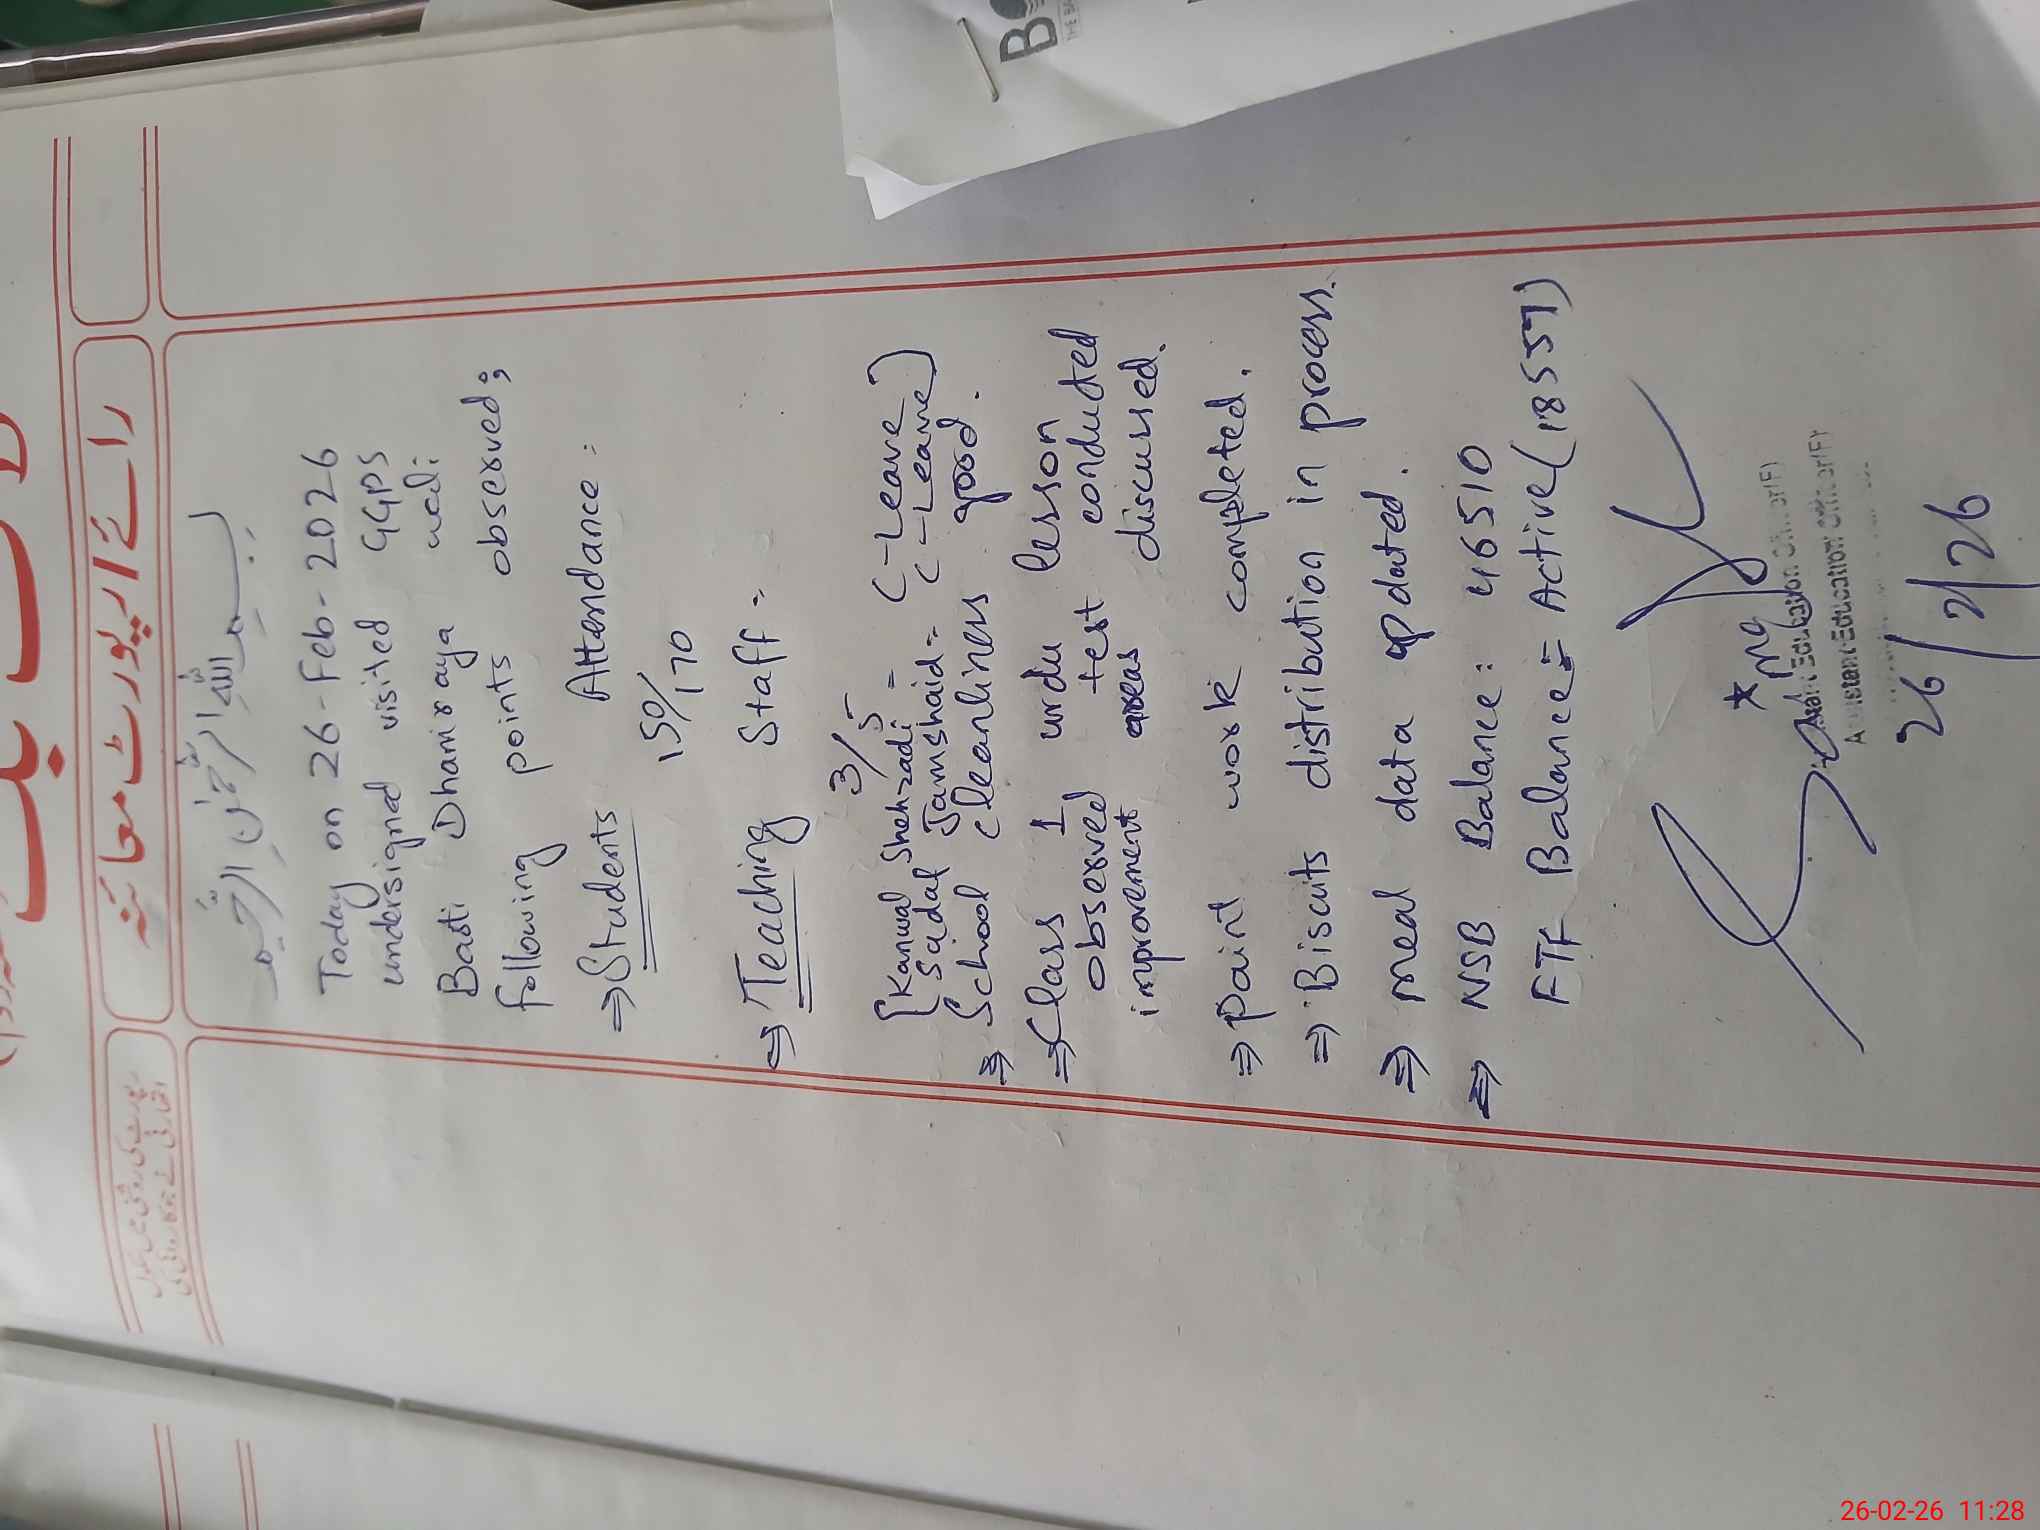 رائے / رپورٹ معائنہ
بسم اللہ الرحمن الرحیم
Today on 26-Feb-2026
undersigned visited GGPS
Basti Dhamiraya
following points observed;
⇒ Students Attendance:
150/170
⇒ Teaching Staff:
3/5
[Kanwal Shehzadi = (-Leave)
Sadaf Jamshaid = (-Leave)
⇒ School cleanliness good.
⇒ Class 1 urdu lesson
observed test conducted
improvement areas discussed.
⇒ Paint work completed.
⇒ Biscuits distribution in process.
⇒ meal data updated.
⇒ NSB Balance: 46510
FTF Balance = Active (18557)
Assistant Education Officer (F)
26/2/26
26-02-26 11:28